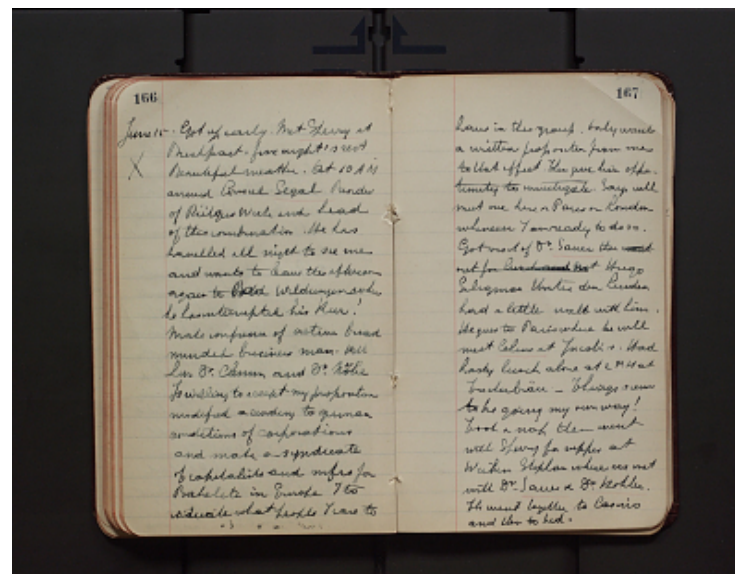 166
June 15 - Got up early. Met Sperry at
Breakfast - fine night's rest
Beautiful weather. At 10 A.M
arrived Consul Segal Founder
of Rütgers Werke and head
of the combination. He has
travelled all night to see me
and wants to leave this afternoon
again to Wildungen where
he has interrupted his Kur!
Made impression of active broad
minded business man.
Dr and Dr
Is willing to accept my proposition
modified according to german
conditions of corporations
and make a syndicate
of capitalists and mfrs for
Bakelite in Europe I to
indicate what people I care to
167
have in this group. Only wants
a written proposition from me
to that effect then give him oppor-
tunity to investigate. Says will
meet me here or Paris or London
whenever I am ready to do so.
Got rid of Dr. Sauer then
met for Hugo
Seligman Unter den Linden
had a little walk with him.
He goes to Paris where he will
meet at Jacobi's. Had
hasty lunch alone at 2 PM at
- Things seem
to be going my own way!
Took a nap then went
with Sperry for supper at
Stephan where we met
with Dr. Sauer & Dr.
Th went together to Casino
and then to bed.